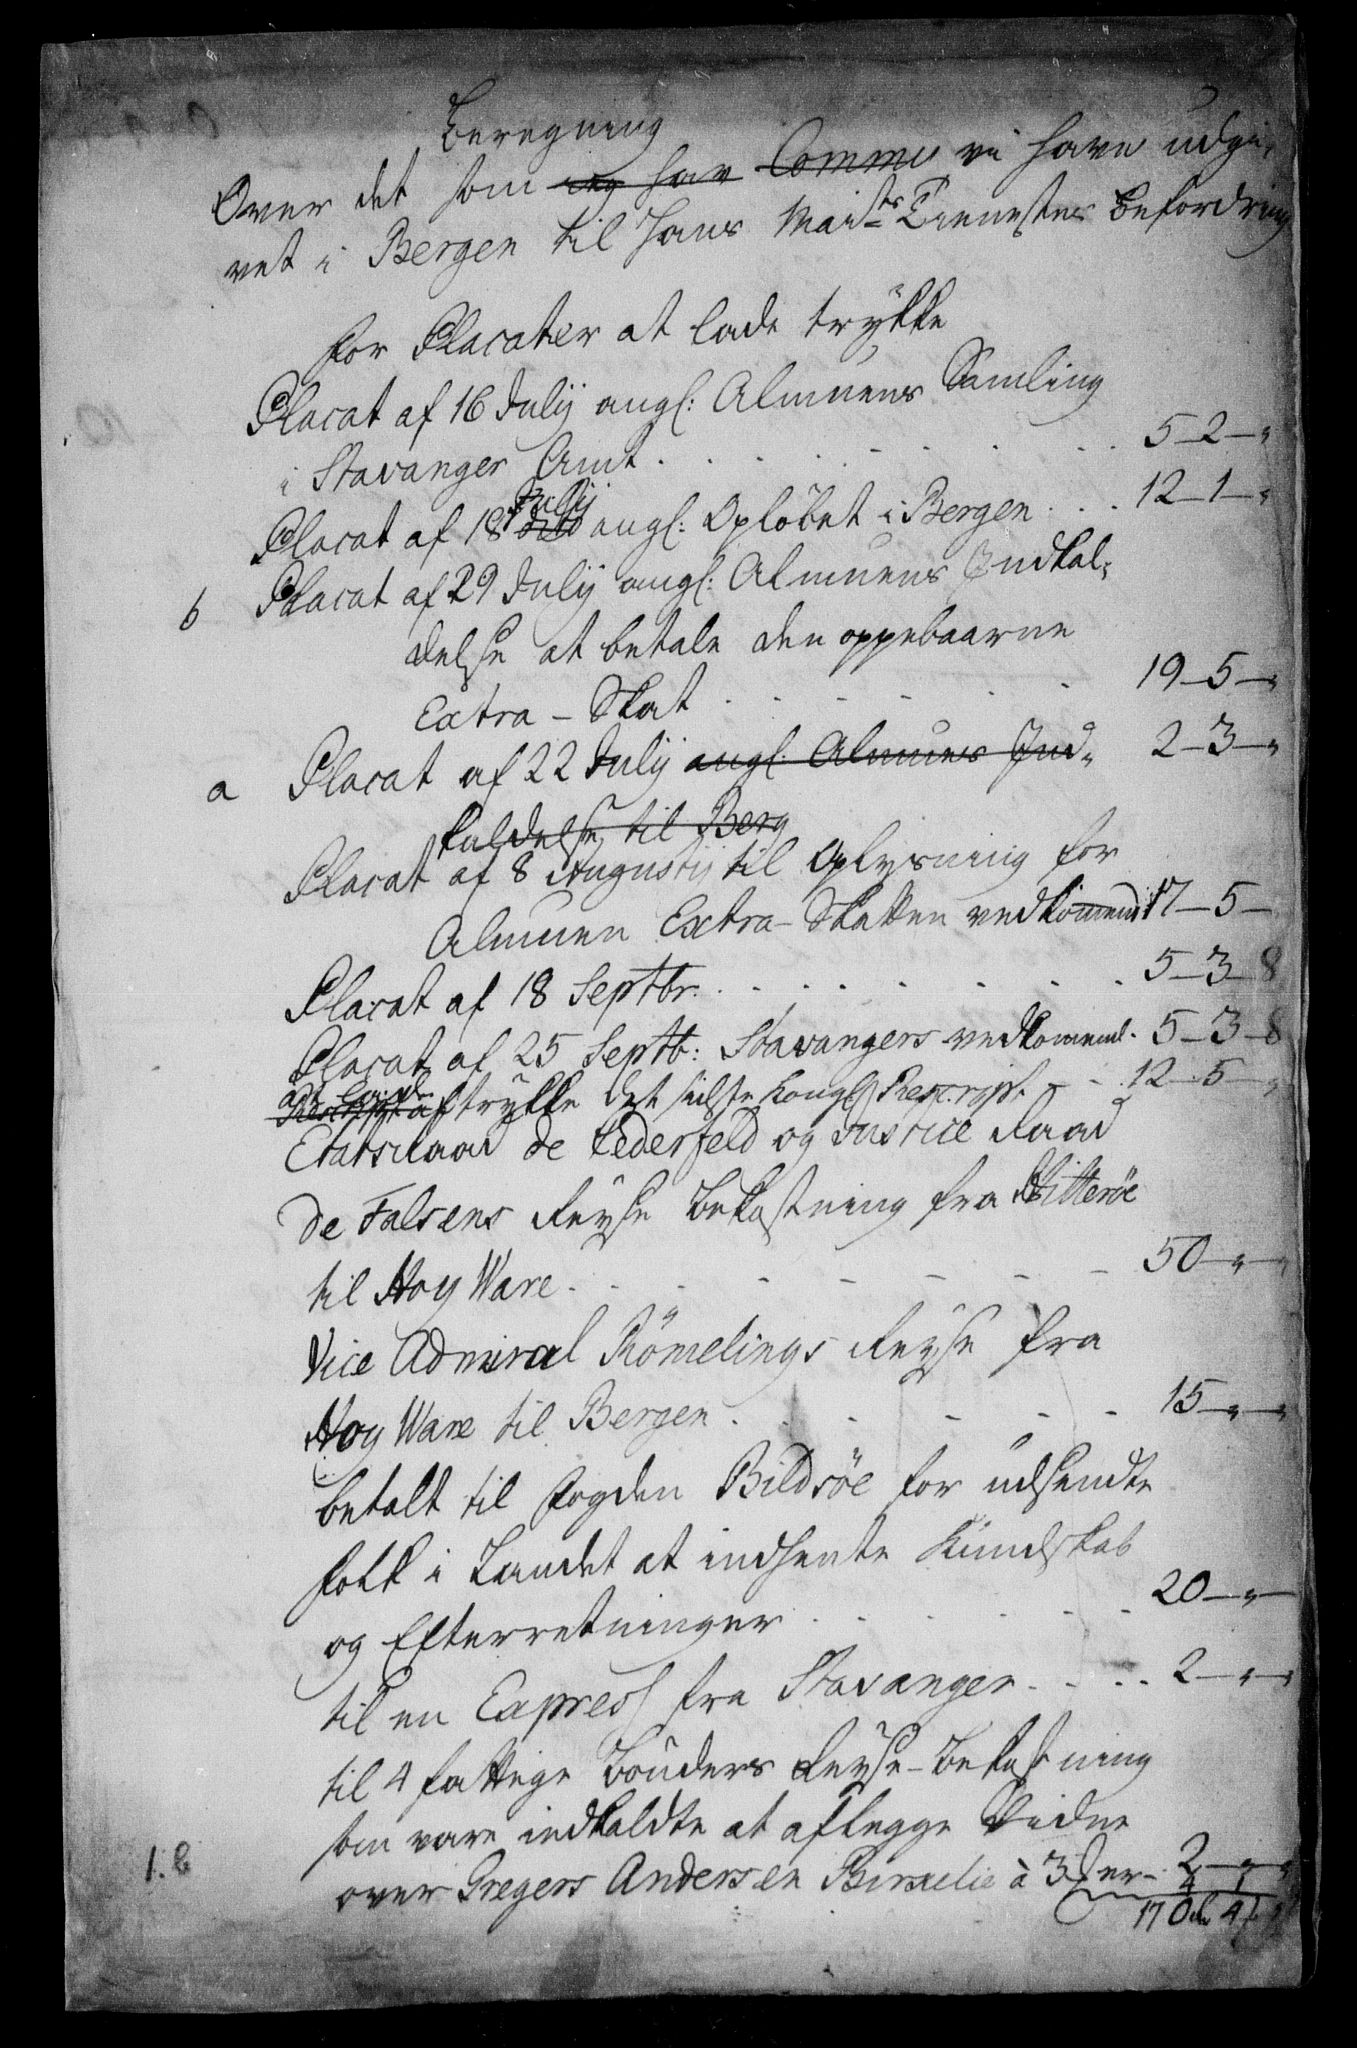 Beregning
Over det som jeg har Commis vi have udgi-
vet i Bergen til Hans Maits Tienestes befordring
for Placater at lade trykke
Placat af 16 Julij angl: Almuens Samling
i Stavanger Amt . . . . . . 5 - 2 - "
Placat af 18 dito Julij angl: Opløbet i Bergen . . . 12 - 1 - "
b Placat af 29 Julij angl: Almuens Indkal-
delse at betale den oppebaarne
Extra - Skat . . . . . . 19 - 5 - "
a Placat af 22 Julij angl: Almues Ind- 2 - 3 - "
kaldelse til Berg
Placat af 8 Augustij til Oplysning for
Almuen Extra - Skatten vedkommend 17 - 5 -
Placat af 18 Septbr. . . . . . . 5 - 3 - 8
Placat af 25 Septb: Stavangers vedkommend. 5 - 3 - 8
aftrykke det sidste Kongl: Rescript - - 12 - 5 - "
Etatsraad de Cederfeld og Justice Raad
de Falsens Reyse bekostning fra Hitterøe
til Hoy Ware . . . . . . 50 - " - "
Vice Admiral Römelings Reyse fra
Hoy Ware til Bergen . . . . . . 15 - " - "
betalt til Fogden Bildsöe for udsendte
folk i Landet at indhente Kundskab
og Efterretninger . . . . . . 20 - " -
til en Expres fra Stavanger . . . . 2 - " - "
til 4 fattige Bönders Reyse - bekostning
som vare indkaldte at aflegge Vidne
1. b over Gregers Andersen Birkelie à 3 - 2 - " - "
170 4